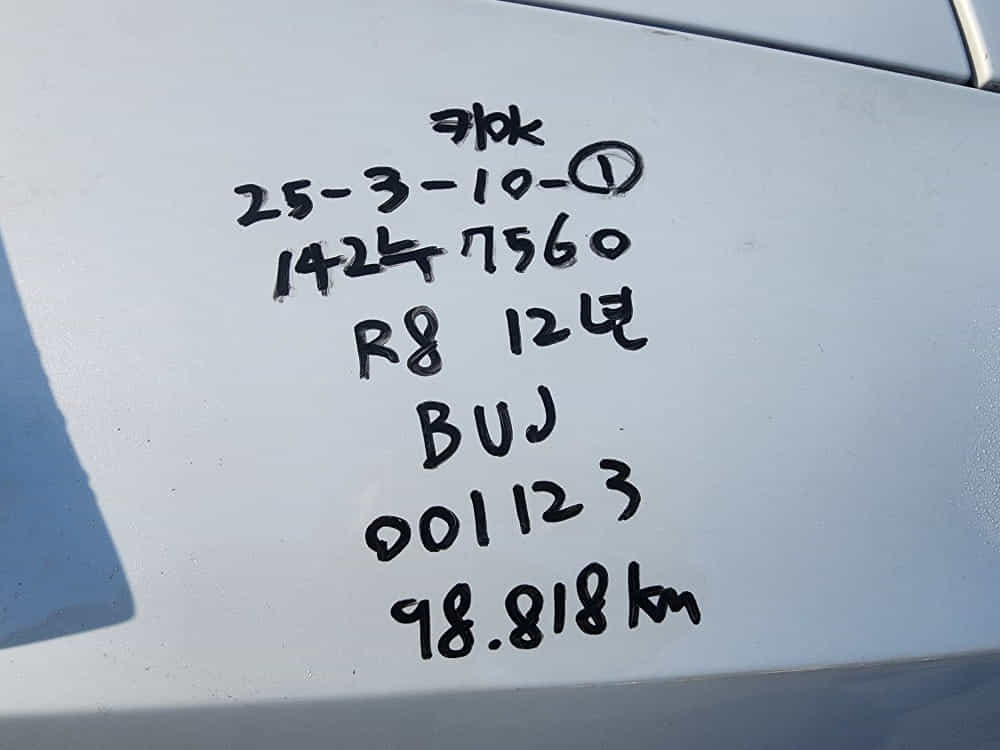 키OK
25-3-10-①
142누7560
R8 12년
BUJ
001123
98.818km